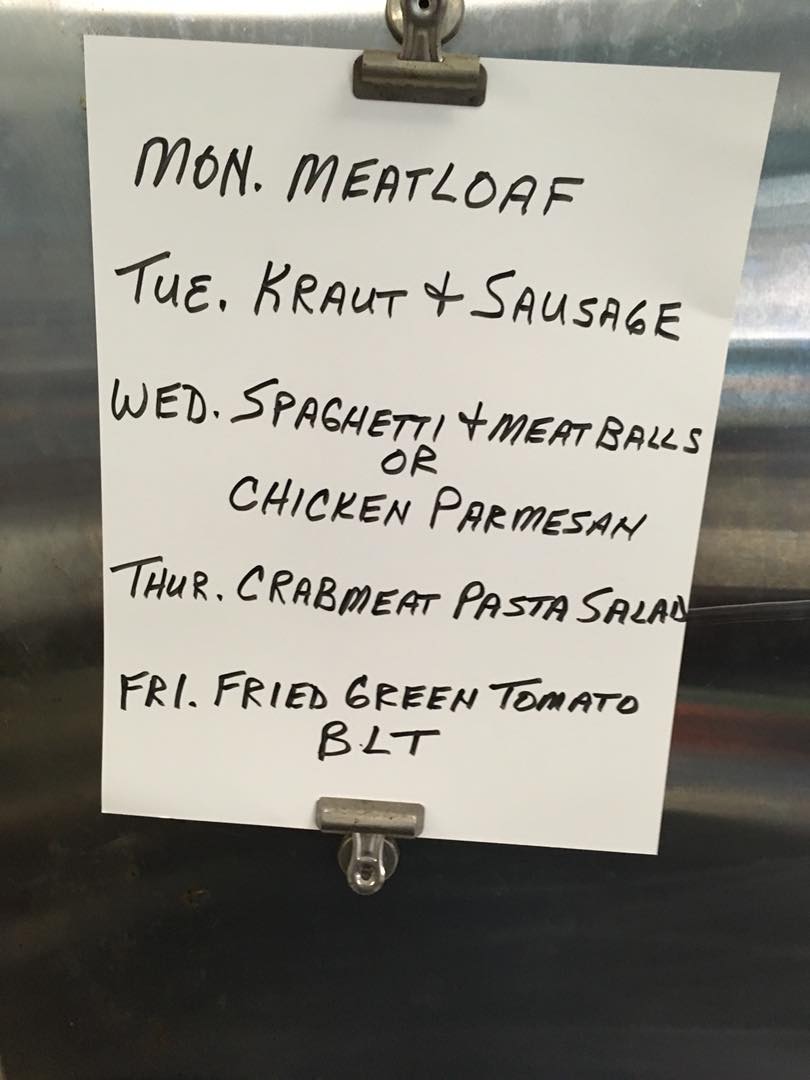 MON. MEATLOAF
TUE. KRAUT & SAUSAGE
WED. SPAGHETTI & MEATBALLS
OR
CHICKEN PARMESAN
THUR. CRABMEAT PASTA SALAD
FRI. FRIED GREEN TOMATO
BLT